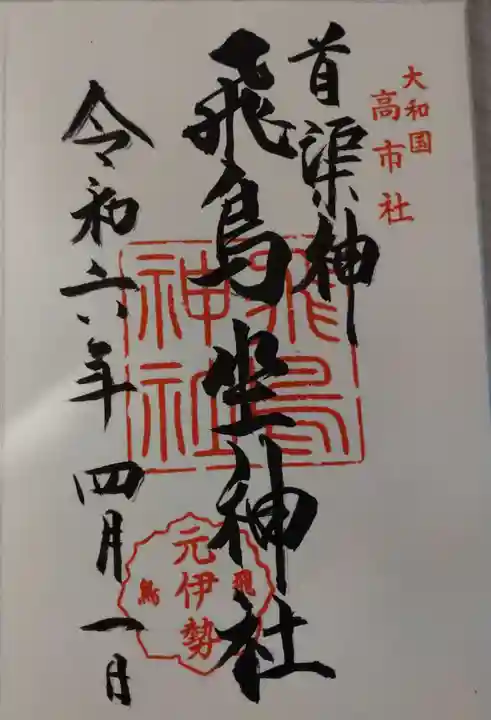 大和国
高市社
首渠神
飛鳥坐神社
飛鳥
神社
元伊勢
飛
鳥
令和六年四月一日